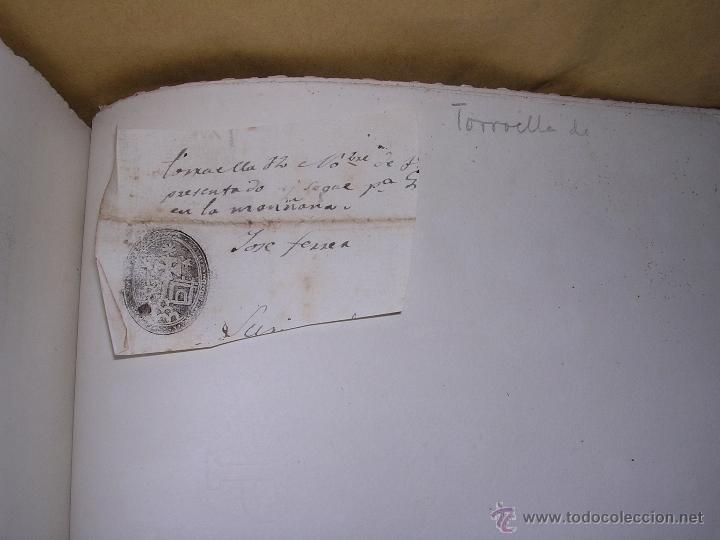 Torroella de
torruella 12 Nobre de
presentado y segue pa
en la mannana.
Jose ferrer
todocoleccion
www.todocoleccion.net